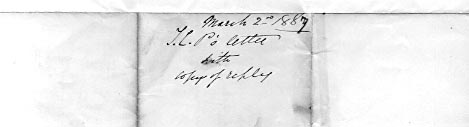 March 2nd 1887
T.L.P's letter
with
copy of reply